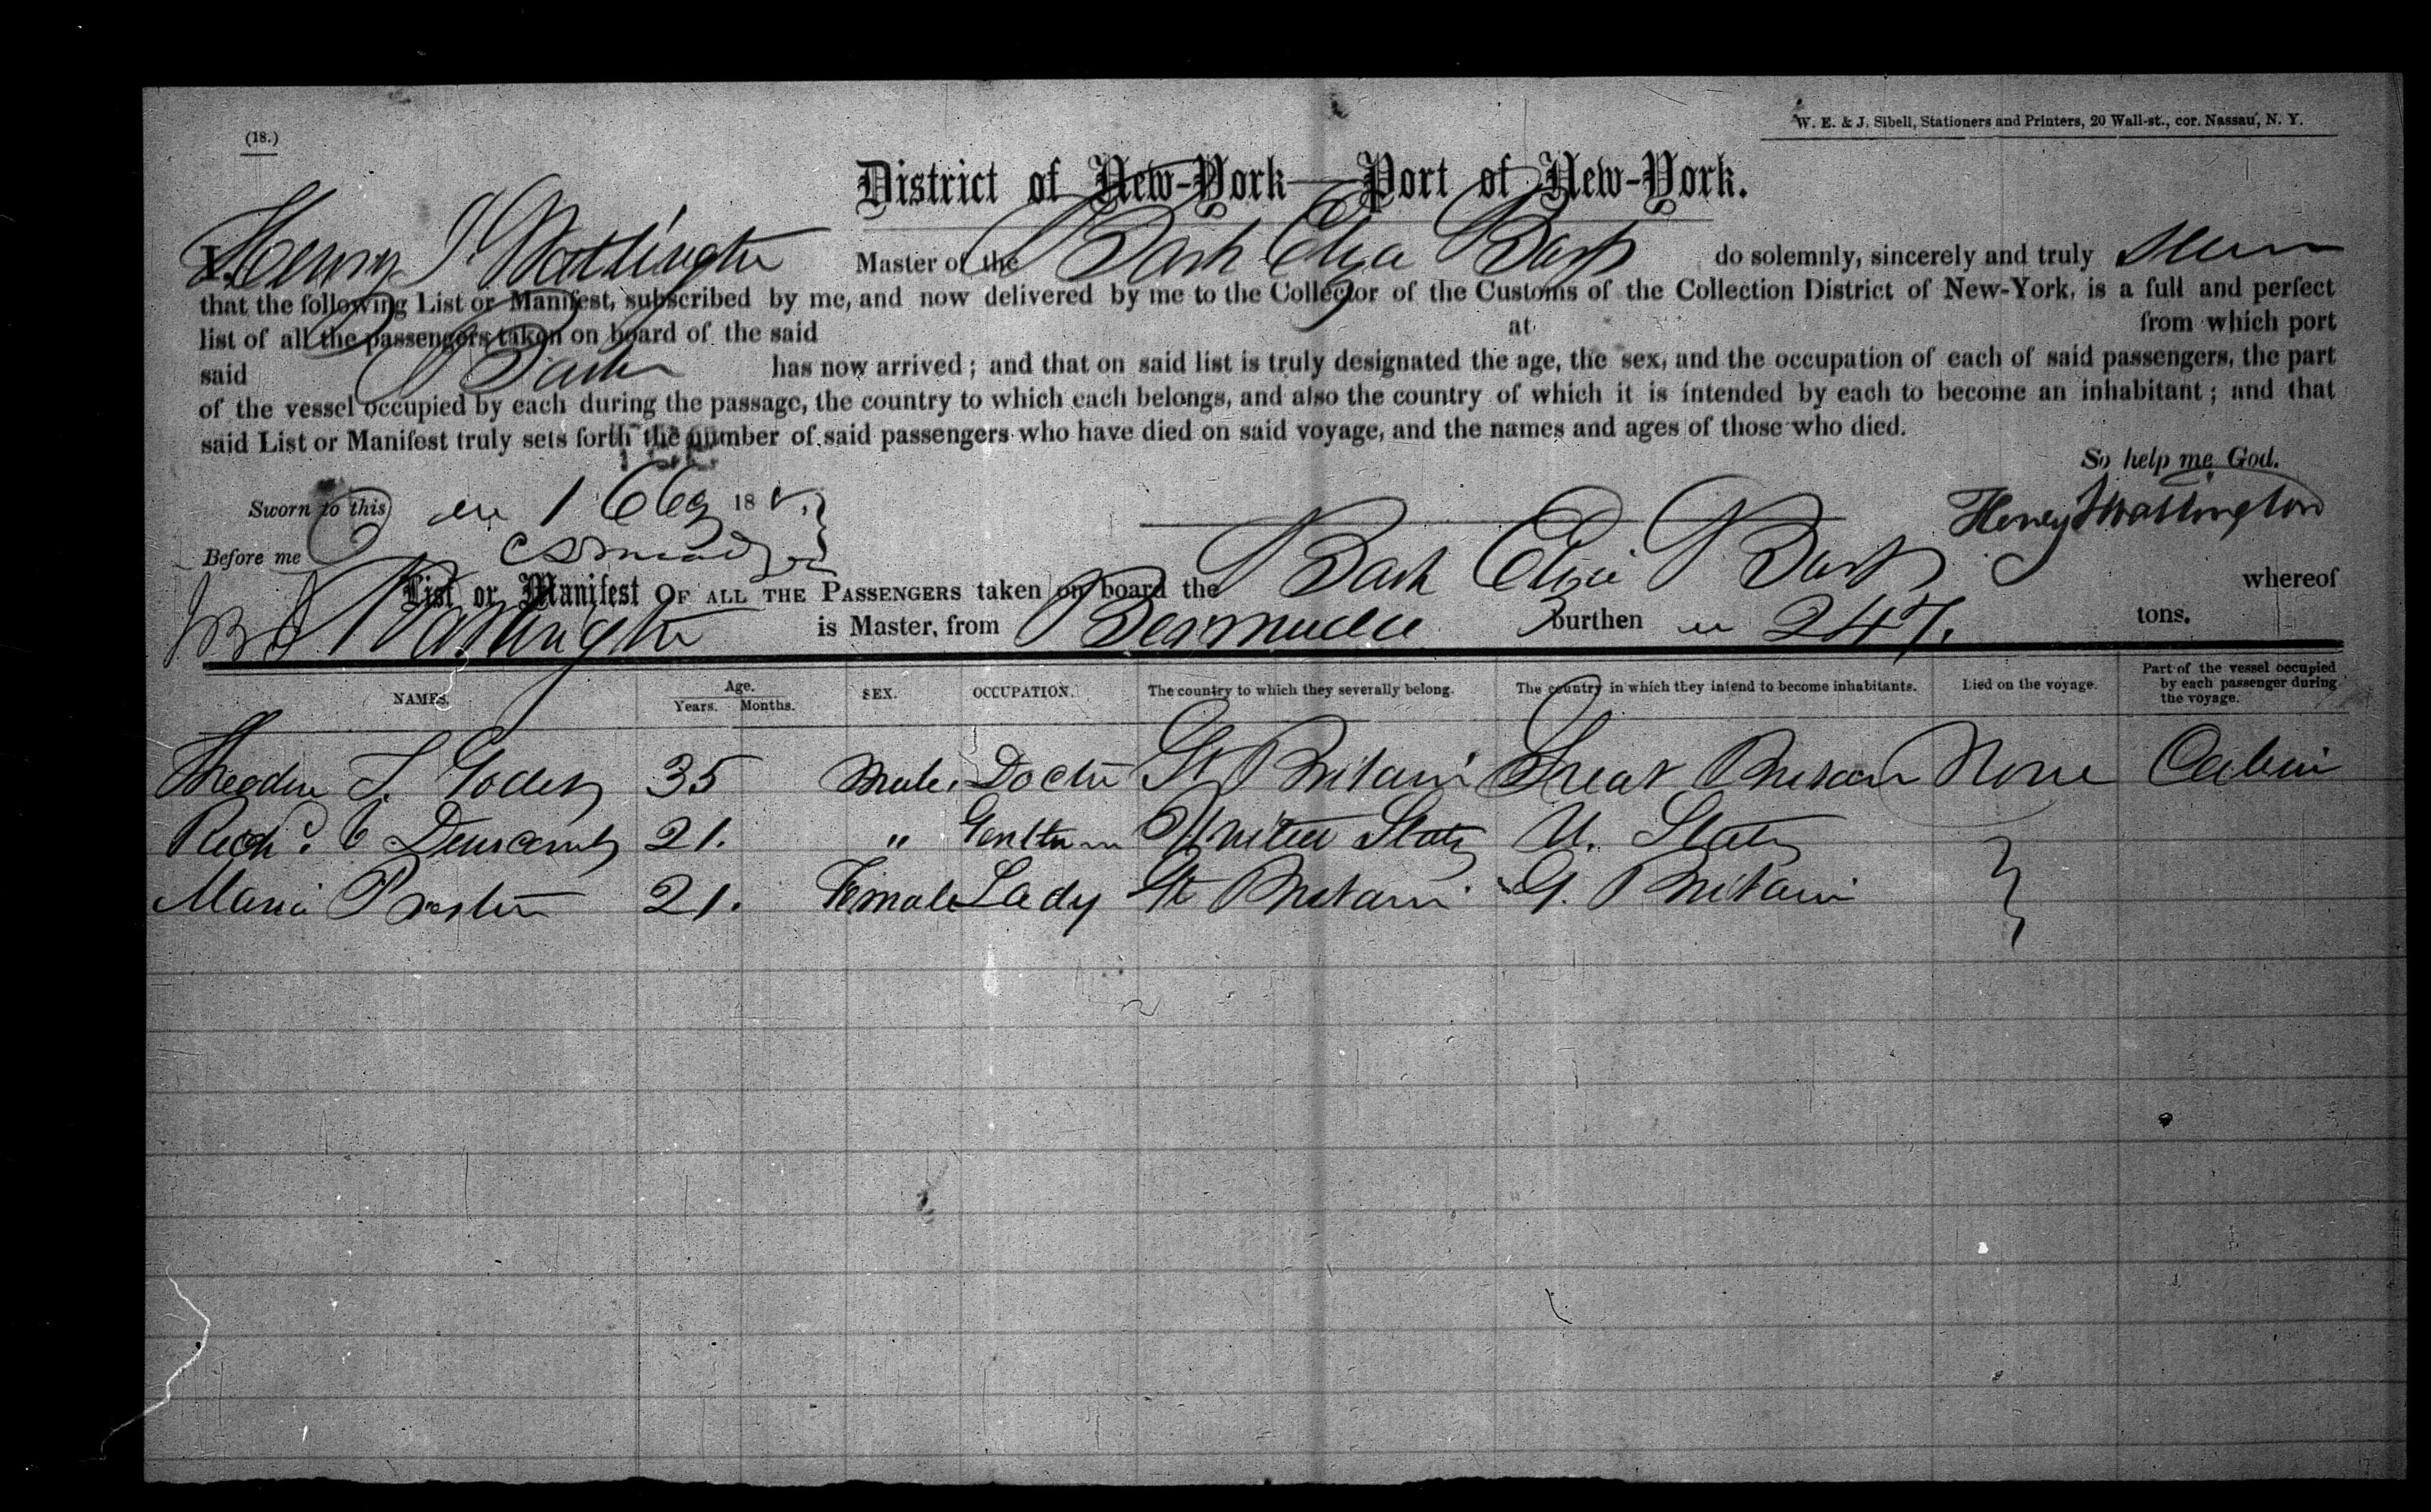 (18.)
W. E. & J. Sibell, Stationers and Printers, 20 Wall-st., cor. Nassau, N. Y.
District of New-York — Port of New-York.
I, Henry J. Watlington Master of the Bark Eliza Bark do solemnly, sincerely and truly
that the following List or Manifest, subscribed by me, and now delivered by me to the Collector of the Customs of the Collection District of New-York, is a full and perfect
list of all the passengers taken on board of the said at from which port
said Bark has now arrived; and that on said list is truly designated the age, the sex, and the occupation of each of said passengers, the part
of the vessel occupied by each during the passage, the country to which each belongs, and also the country of which it is intended by each to become an inhabitant; and that
said List or Manifest truly sets forth the number of said passengers who have died on said voyage, and the names and ages of those who died.
So help me God.
Sworn to this 18 Henry J Watlington
Before me
List or Manifest OF ALL THE PASSENGERS taken on board the Bark Bark whereof
Watlington is Master, from Bermuda burthen 247. tons.
NAMES. Age. Years. Months. SEX. OCCUPATION. The country to which they severally belong. The country in which they intend to become inhabitants. Died on the voyage. Part of the vessel occupied by each passenger during the voyage.
Theodore J. Godet 35 Male. Doctor Gt Britain Great Britain None Cabin
Richd. Dunscomb 21. " Gentleman United States U. States
Maria Preston 21. Female Lady Gt Britain G. Britain